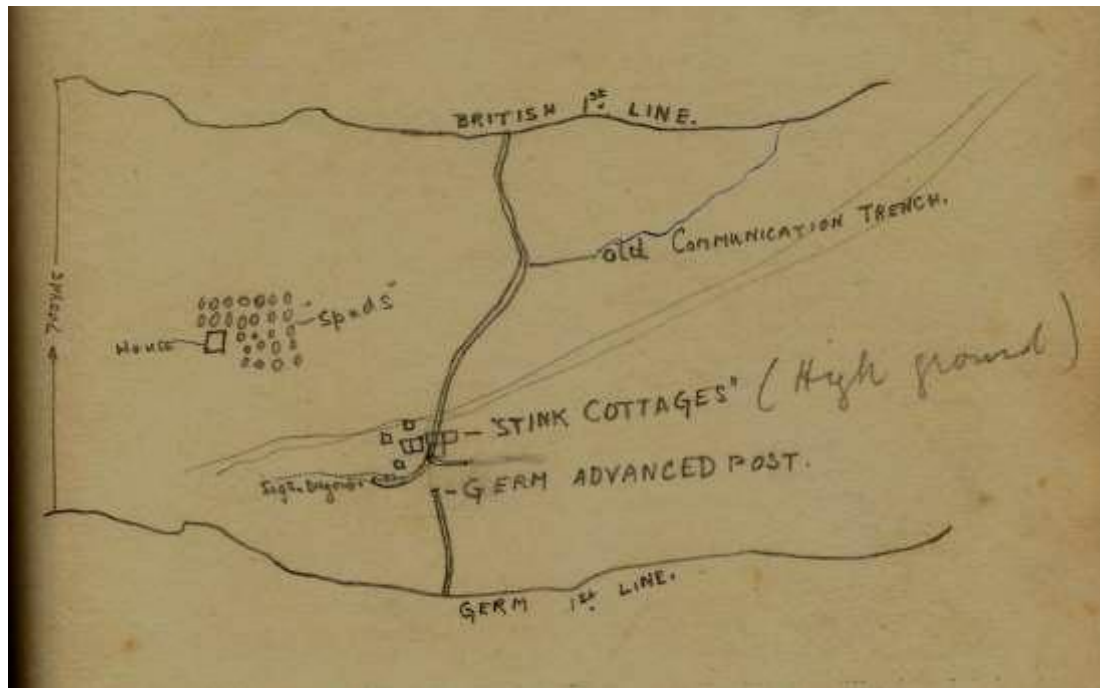 BRITISH 1st. LINE.
Old COMMUNICATION TRENCH.
"Spuds"
HOUSE
"STINK COTTAGES" (High ground)
GERM ADVANCED POST.
GERM 1st. LINE.